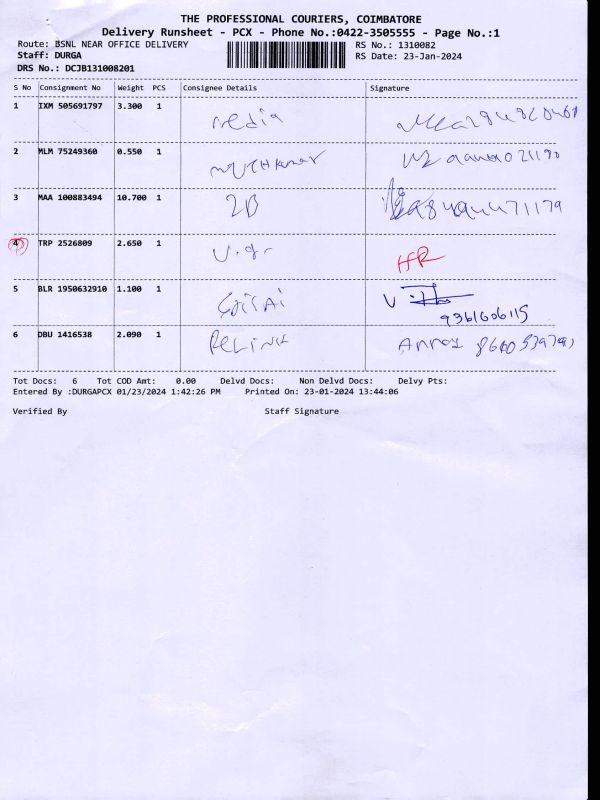 THE PROFESSIONAL COURIERS, COIMBATORE
Delivery Runsheet - PCX - Phone No.:0422-3505555 - Page No.:1
Route: BSNL NEAR OFFICE DELIVERY RS No.: 1310082
Staff: DURGA RS Date: 23-Jan-2024
DRS No.: DCJB131008201
S No Consignment No Weight PCS Consignee Details Signature
1 IXM 505691797 3.300 1 media
2 MLM 75249360 0.550 1
3 MAA 100883494 10.700 1 2B
4 TRP 2526809 2.650 1 HR
5 BLR 1950632910 1.100 1
9361606115
6 DBU 1416538 2.090 1
Tot Docs: 6 Tot COD Amt: 0.00 Delvd Docs: Non Delvd Docs: Delvy Pts:
Entered By :DURGAPCX 01/23/2024 1:42:26 PM Printed On: 23-01-2024 13:44:06
Verified By Staff Signature